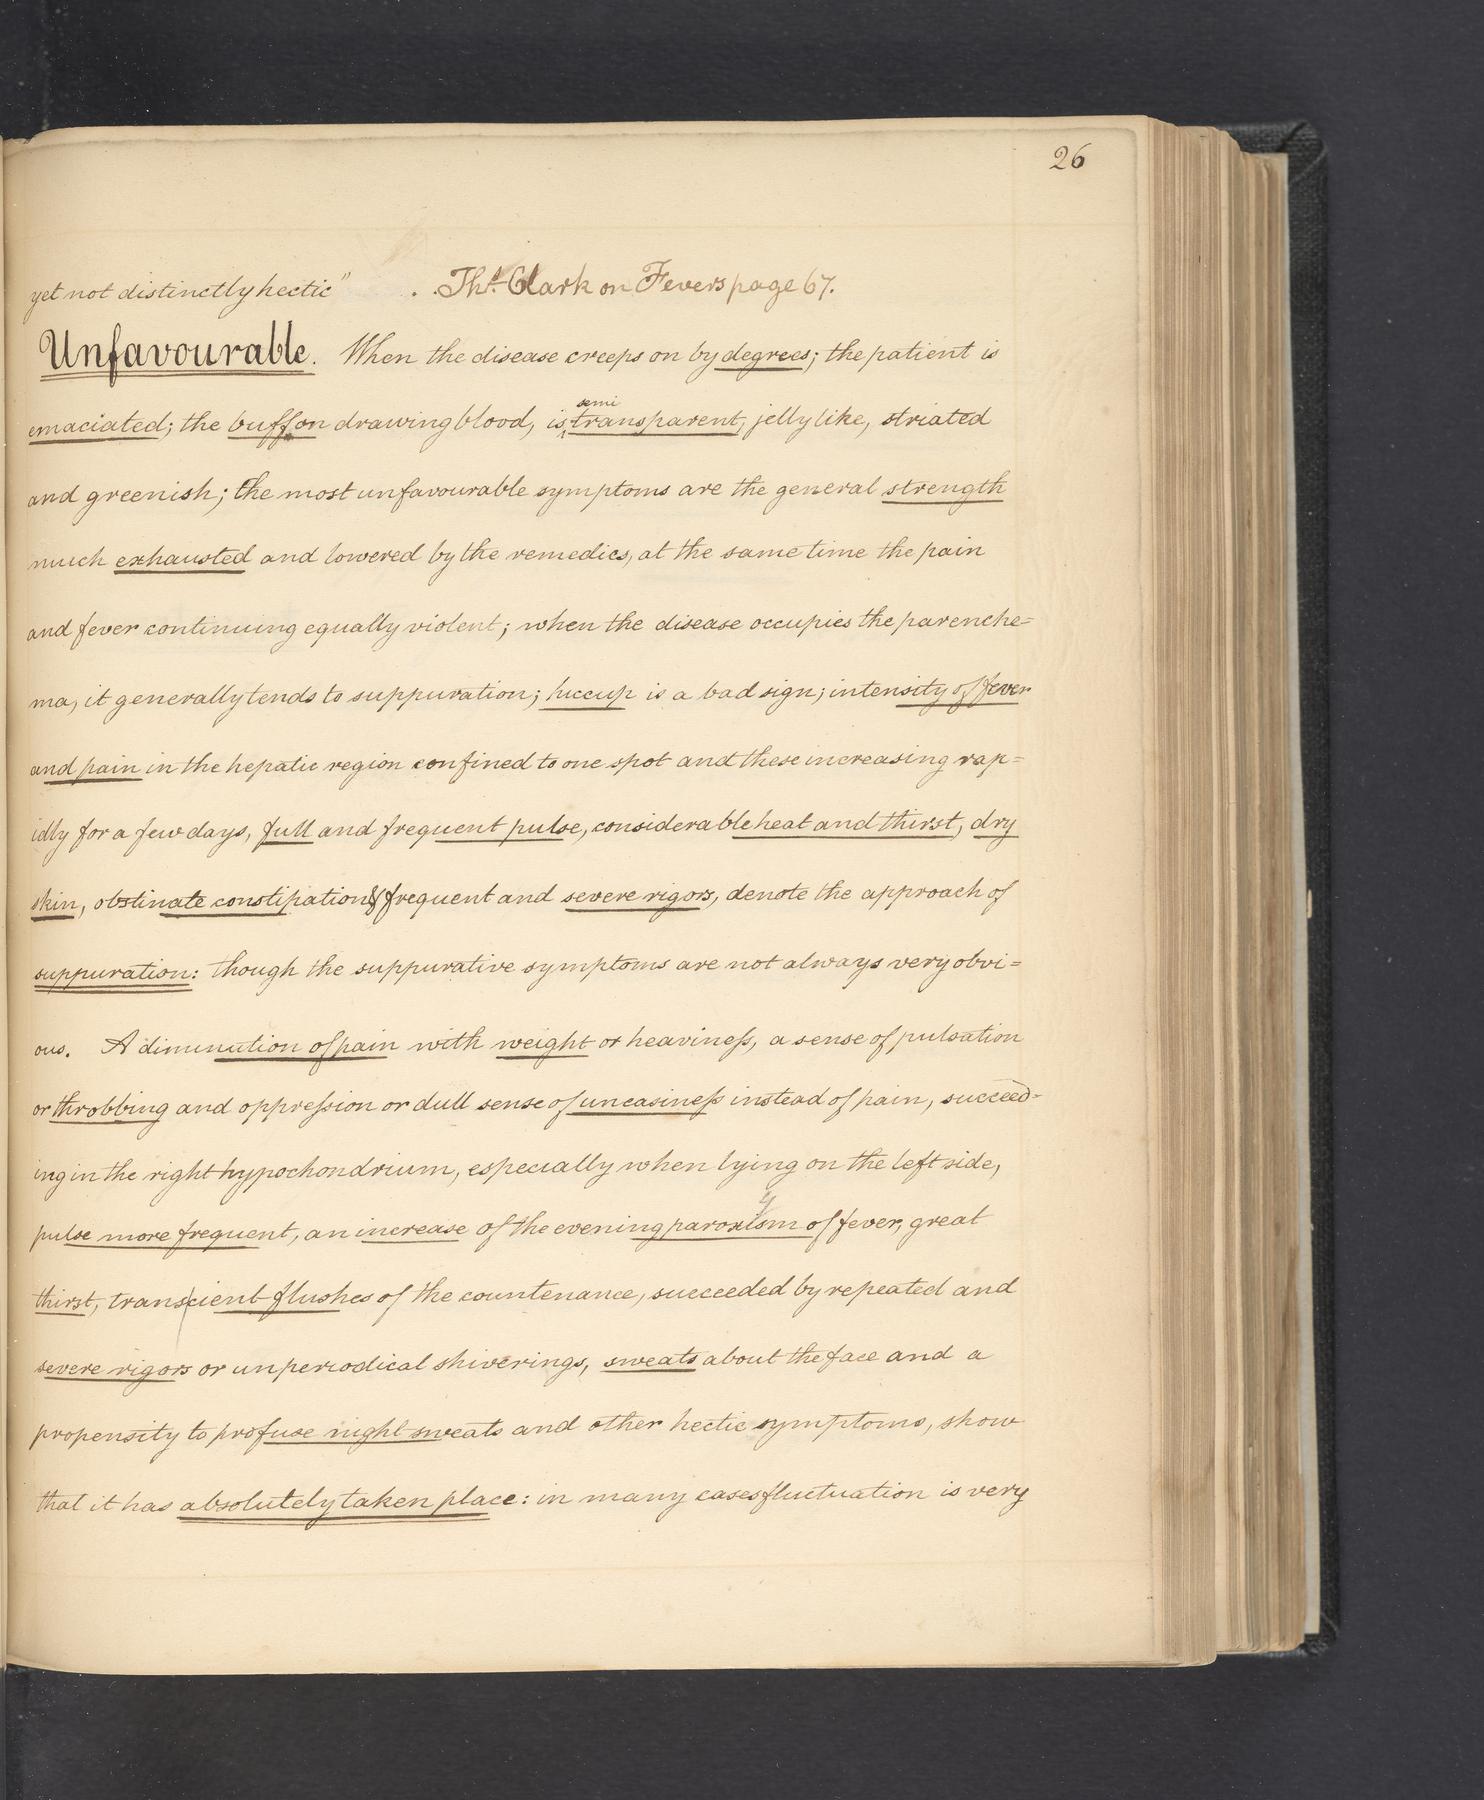 26
yet not distinctly hectic" . . Ths. Clark on Fevers page 67.
Unfavourable. When the disease creeps on by degrees; the patient is
emaciated; the buff on drawing blood, is semi transparent, jelly like, striated
and greenish; the most unfavourable symptoms are the general strength
much exhausted and lowered by the remedies, at the same time the pain
and fever continuing equally violent; when the disease occupies the parenche=
ma, it generally tends to suppuration; hiccup is a bad sign; intensity of fever
and pain in the hepatic region confined to one spot and these increasing rap=
idly for a few days, full and frequent pulse, considerable heat and thirst, dry
skin, obstinate constipation & frequent and severe rigors, denote the approach of
suppuration: though the suppurative symptoms are not always very obvi=
ous. A diminution of pain with weight or heaviness, a sense of pulsation
or throbbing and oppression or dull sense of uneasiness instead of pain, succeed=
ing in the right hypochondrium, especially when lying on the left side,
pulse more frequent, an increase of the evening paroxysm of fever, great
thirst, transcient flushes of the countenance, succeeded by repeated and
severe rigors or unperiodical shiverings, sweats about the face and a
propensity to profuse night sweats and other hectic symptoms, show
that it has absolutely taken place: in many cases fluctuation is very